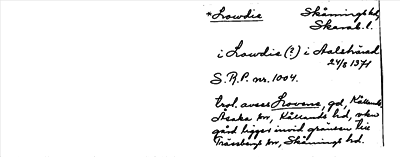 *Lowdie Skånings hd,
Skarab. l.
i Lowdie (?) i Aalsthærad
24/8 1371
S.R.P. nr. 1004.
Trol. avses Lovene, gd, Kållands
Åsaka sn, Kållands hd, vilken
gård ligger invid gränsen till
Trässbergs sn, Skånings hd.